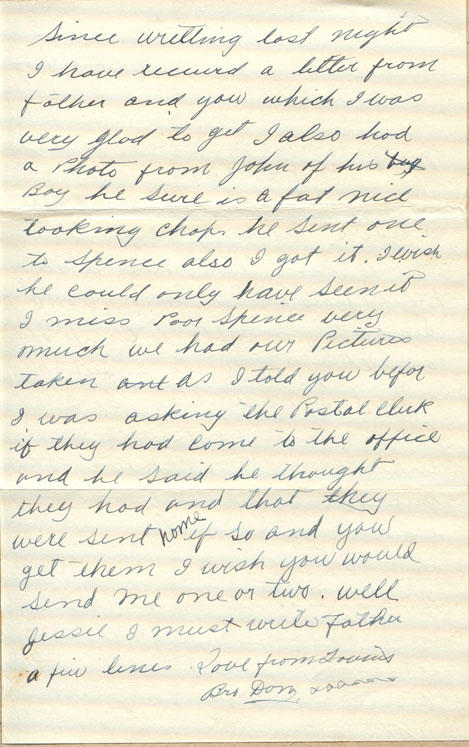 Since writting last night
I have recieved a letter from
father and you which I was
very glad to get I also had
a Photo from John of his
Boy he sure is a fat nice
looking chap he sent one
to Spence also I got it. I wish
he could only have seen it
I miss Poor Spence very
much we had our Pictures
taken and as I told you befor
I was asking the Postal Clerk
if they had come to the office
and he said he thought
they had and that they
were sent home if so and you
get them I wish you would
send me one or two. well
Jessie I must write Father
a few lines. Love from
Bro